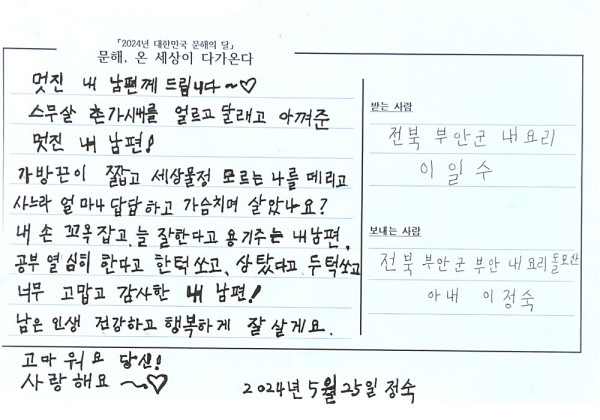 「2024년 대한민국 문해의 달」
문해, 온 세상이 다가온다
멋진 내 남편께 드립니다~♡
스무살 촌가시내를 얼르고 달래고 아껴준
멋진 내 남편!
가방끈이 짧고 세상물정 모르는 나를 데리고
사느라 얼마나 답답하고 가슴치며 살았나요?
내 손 꼬옥잡고, 늘 잘한다고 용기주는 내남편,
공부 열심히 한다고 한턱쏘고, 상탔다고, 두턱쏘고
너무 고맙고 감사한 내 남편!
남은 인생 건강하고 행복하게 잘 살게요.
고마워요 당신!
사랑해요~♡
2024년 5월 25일 정숙
받는 사람
전북 부안군 내요리
이일수
보내는 사람
전북 부안군 부안 내요리돌모산
아내 이정숙